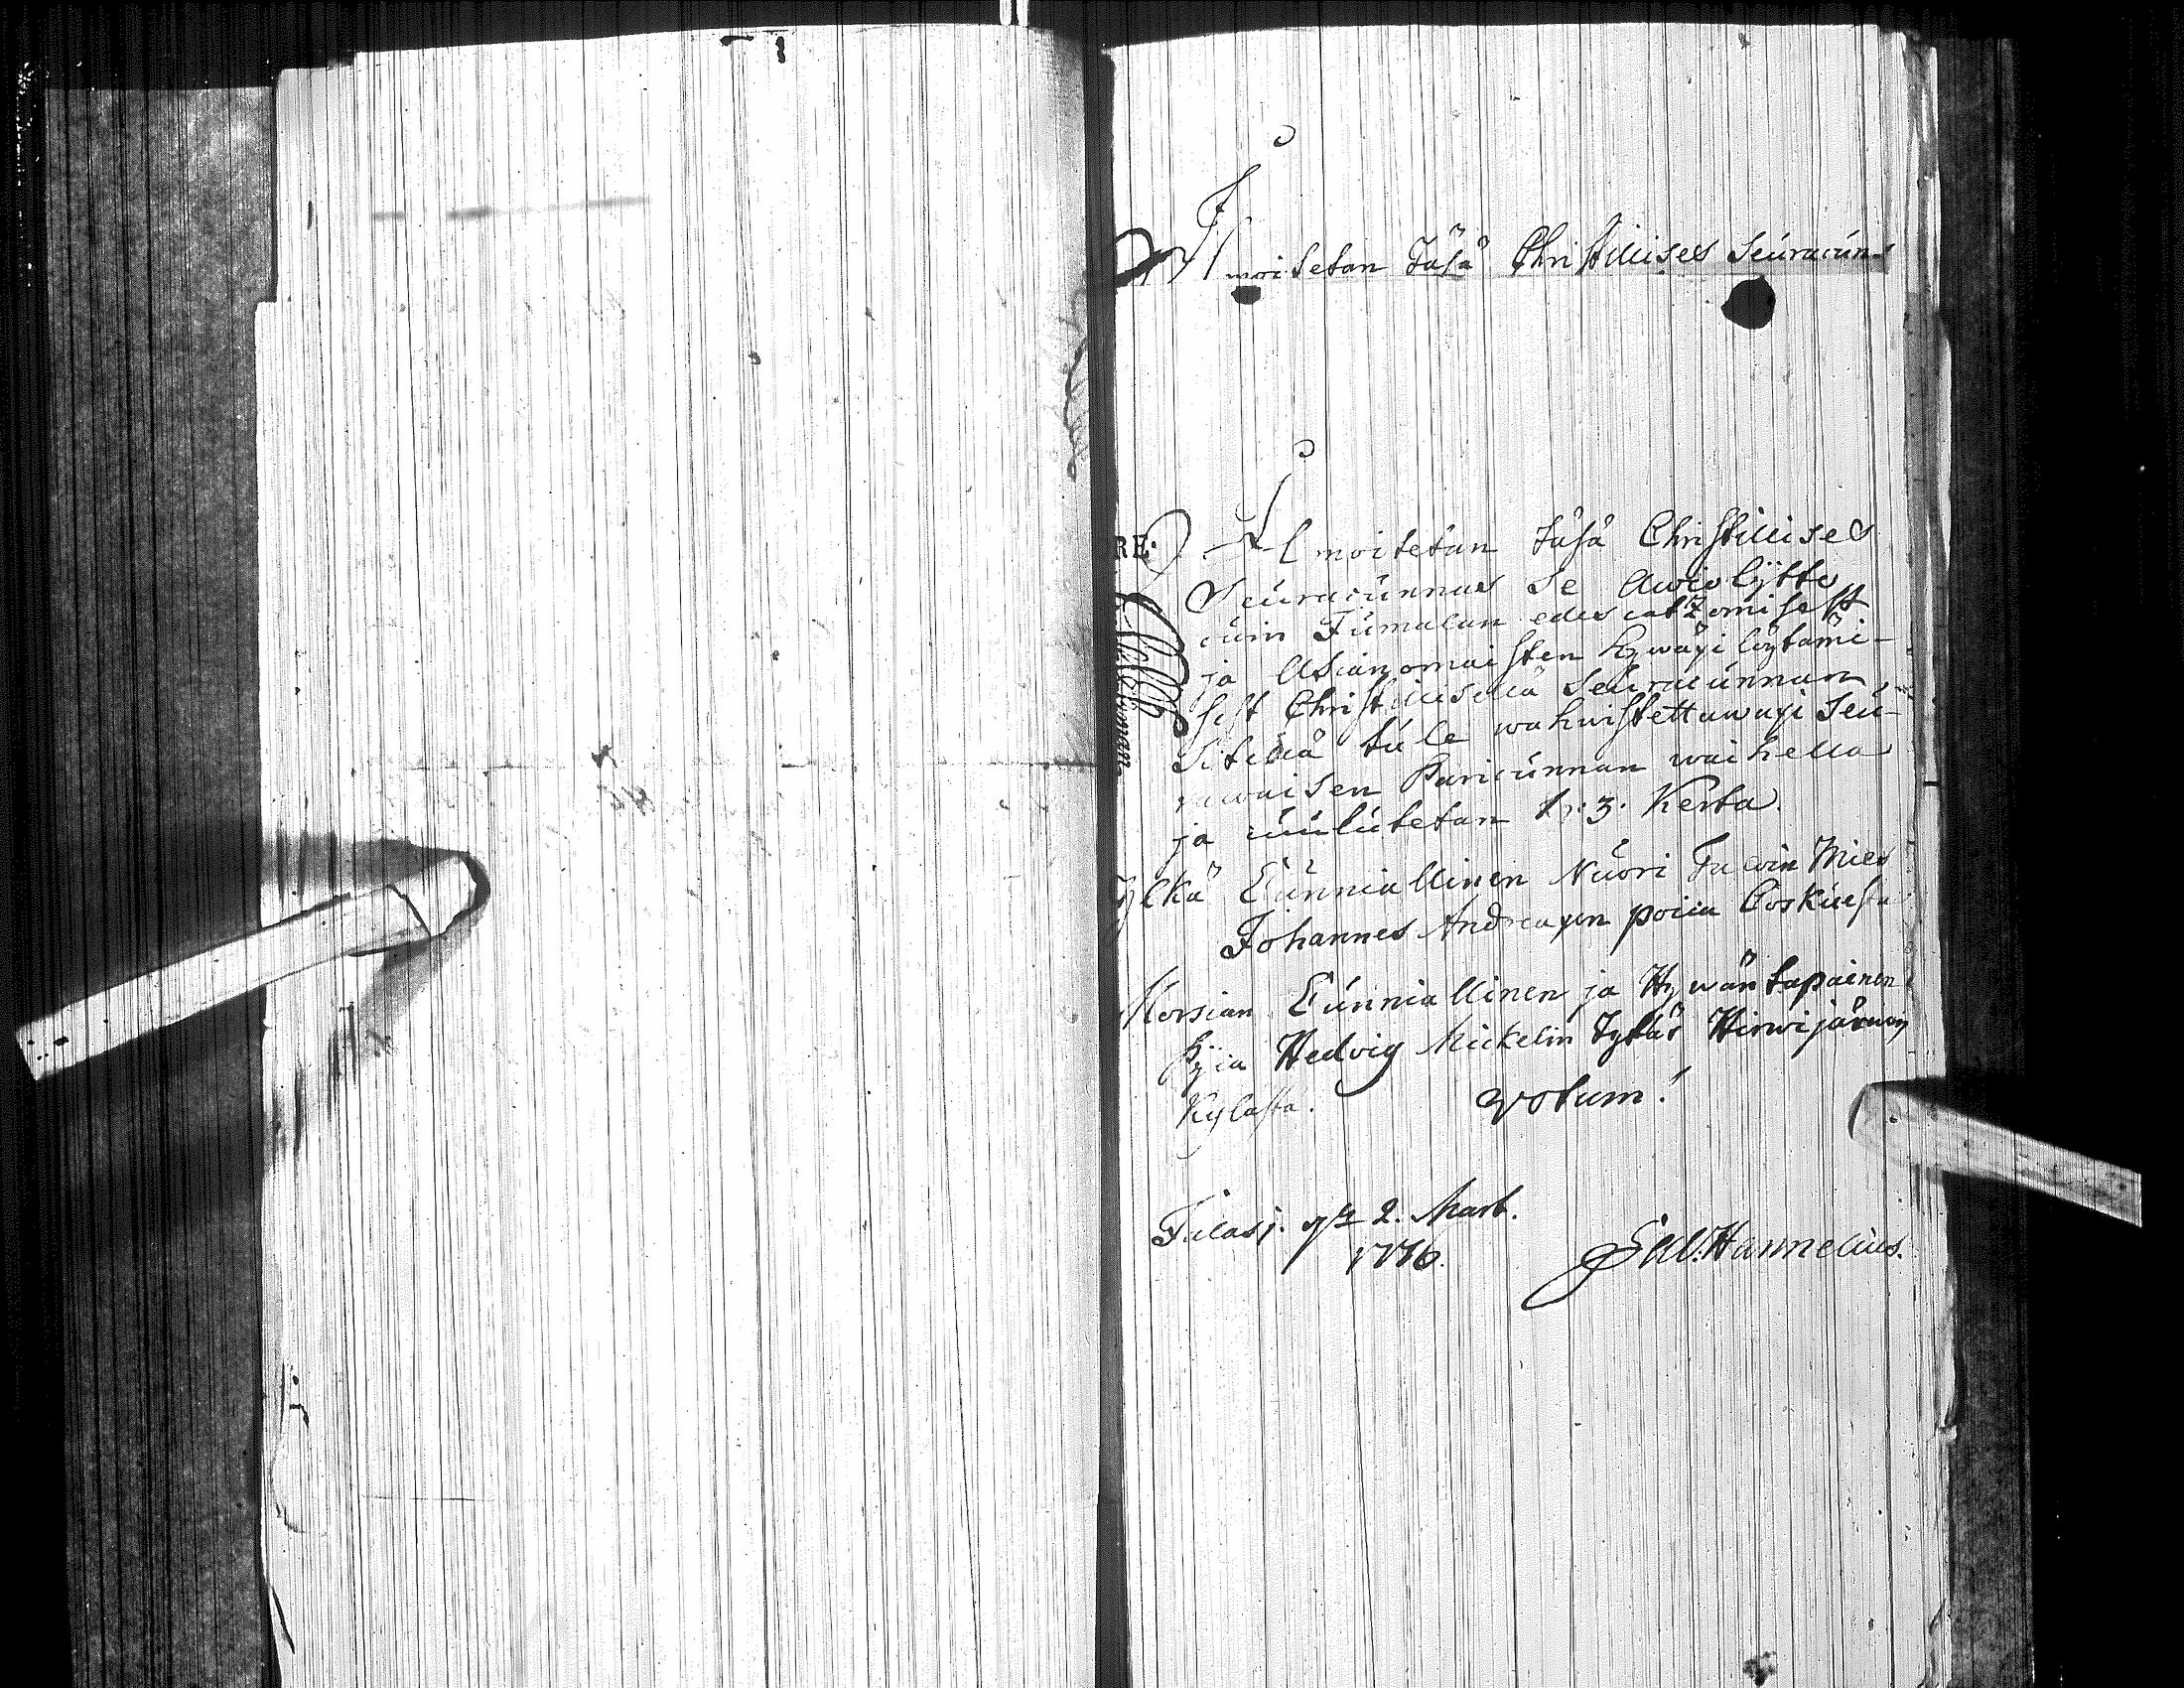 Ilmoitetan Täsä Christillises Seuracun-
RE.
Ilmoitetan Täsä Christillises
Seuracunnas se Awiolijtto
cuin Jumalan edescatzomisest
ja Asianomaisten hywäxi löytämi-
sest Christillisellä Seuracunnan
Siteellä tule wahwistettawaxi Seu-
rawaisen Pariscunnan waihella
ja cuulutetan 1:3. Kerta.
Ylkä Cunniallinen Nuori Taloin Mies
Johannes Andreaxen poica Coskuesta
Morsian Cunniallinen ja Hywäntapainen
Pijca Hedvig Mickelin Tytär Hirwijärwen
Kylasta. Votum!
Jalasj. 2. Mart.
1776. Hannelius.